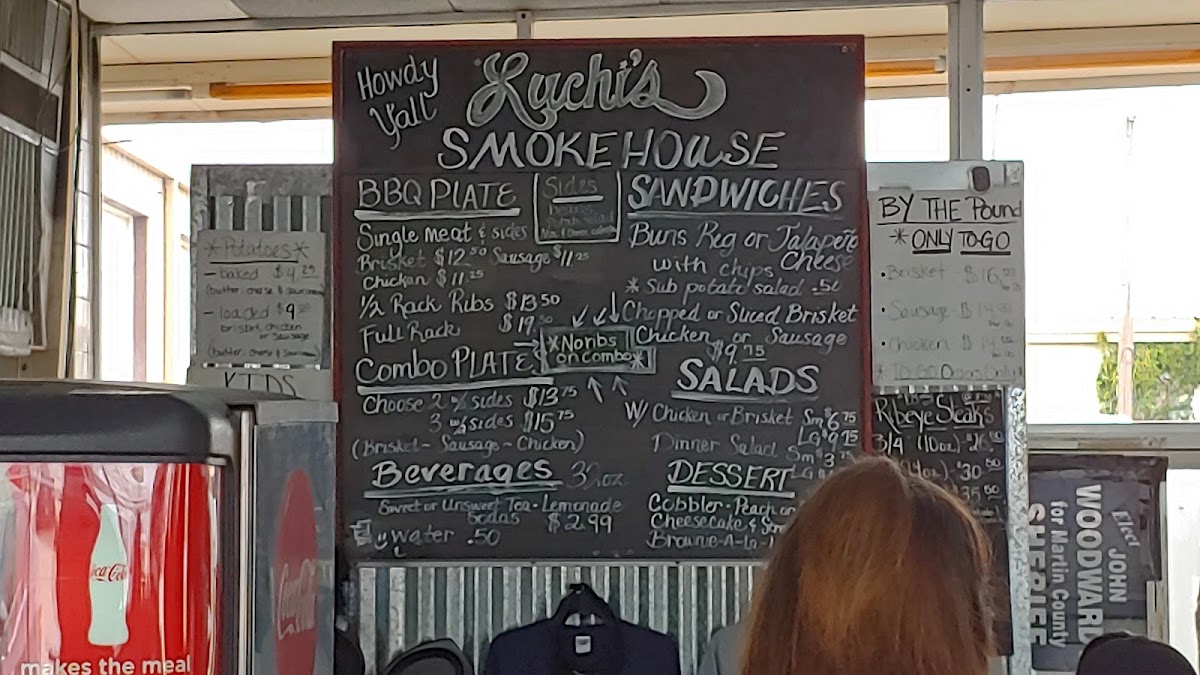 Howdy
Y'all
Luchi's
SMOKEHOUSE
BBQ PLATE
Single meat & sides
Brisket $12.50 Sausage $11.25
Chicken $11.25
1/2 Rack Ribs $13.50
Full Rack $19.50
Sides
beans
Potato Salad
Combo PLATE
*No ribs
on combo*
Choose 2 w/ sides $13.75
3 w/ sides $15.75
(Brisket - Sausage - Chicken)
Beverages 32oz.
Sweet or Unsweet Tea - Lemonade
Sodas $2.99
Water .50
SANDWICHES
Buns Reg or Jalapeño
Cheese
with chips
* Sub potato salad .50
Chopped or Sliced Brisket
Chicken or Sausage
$9.75
SALADS
W/ Chicken or Brisket Sm $6.75
Lg $9.75
Dinner Salad Sm $3.75
Lg
DESSERT
Cobbler - Peach or
Cheesecake &
Brownie-A-La-
*Potatoes*
- baked $4.25
(butter, cheese & sour cream)
- loaded $9
brisket, chicken
or Sausage
(butter, cheese & sour cream)
KIDS
BY THE Pound
* ONLY TO-GO
• Brisket - $16
• Sausage - $14
• Chicken - $14
* TO GO Orders Only
Ribeye Steaks
3/4 (10oz) $26
(14oz) $30.50
$35.50
Elect
JOHN
WOODWARD
for Martin County
SHERIFF
Coca-Cola
makes the meal
Coca-Cola